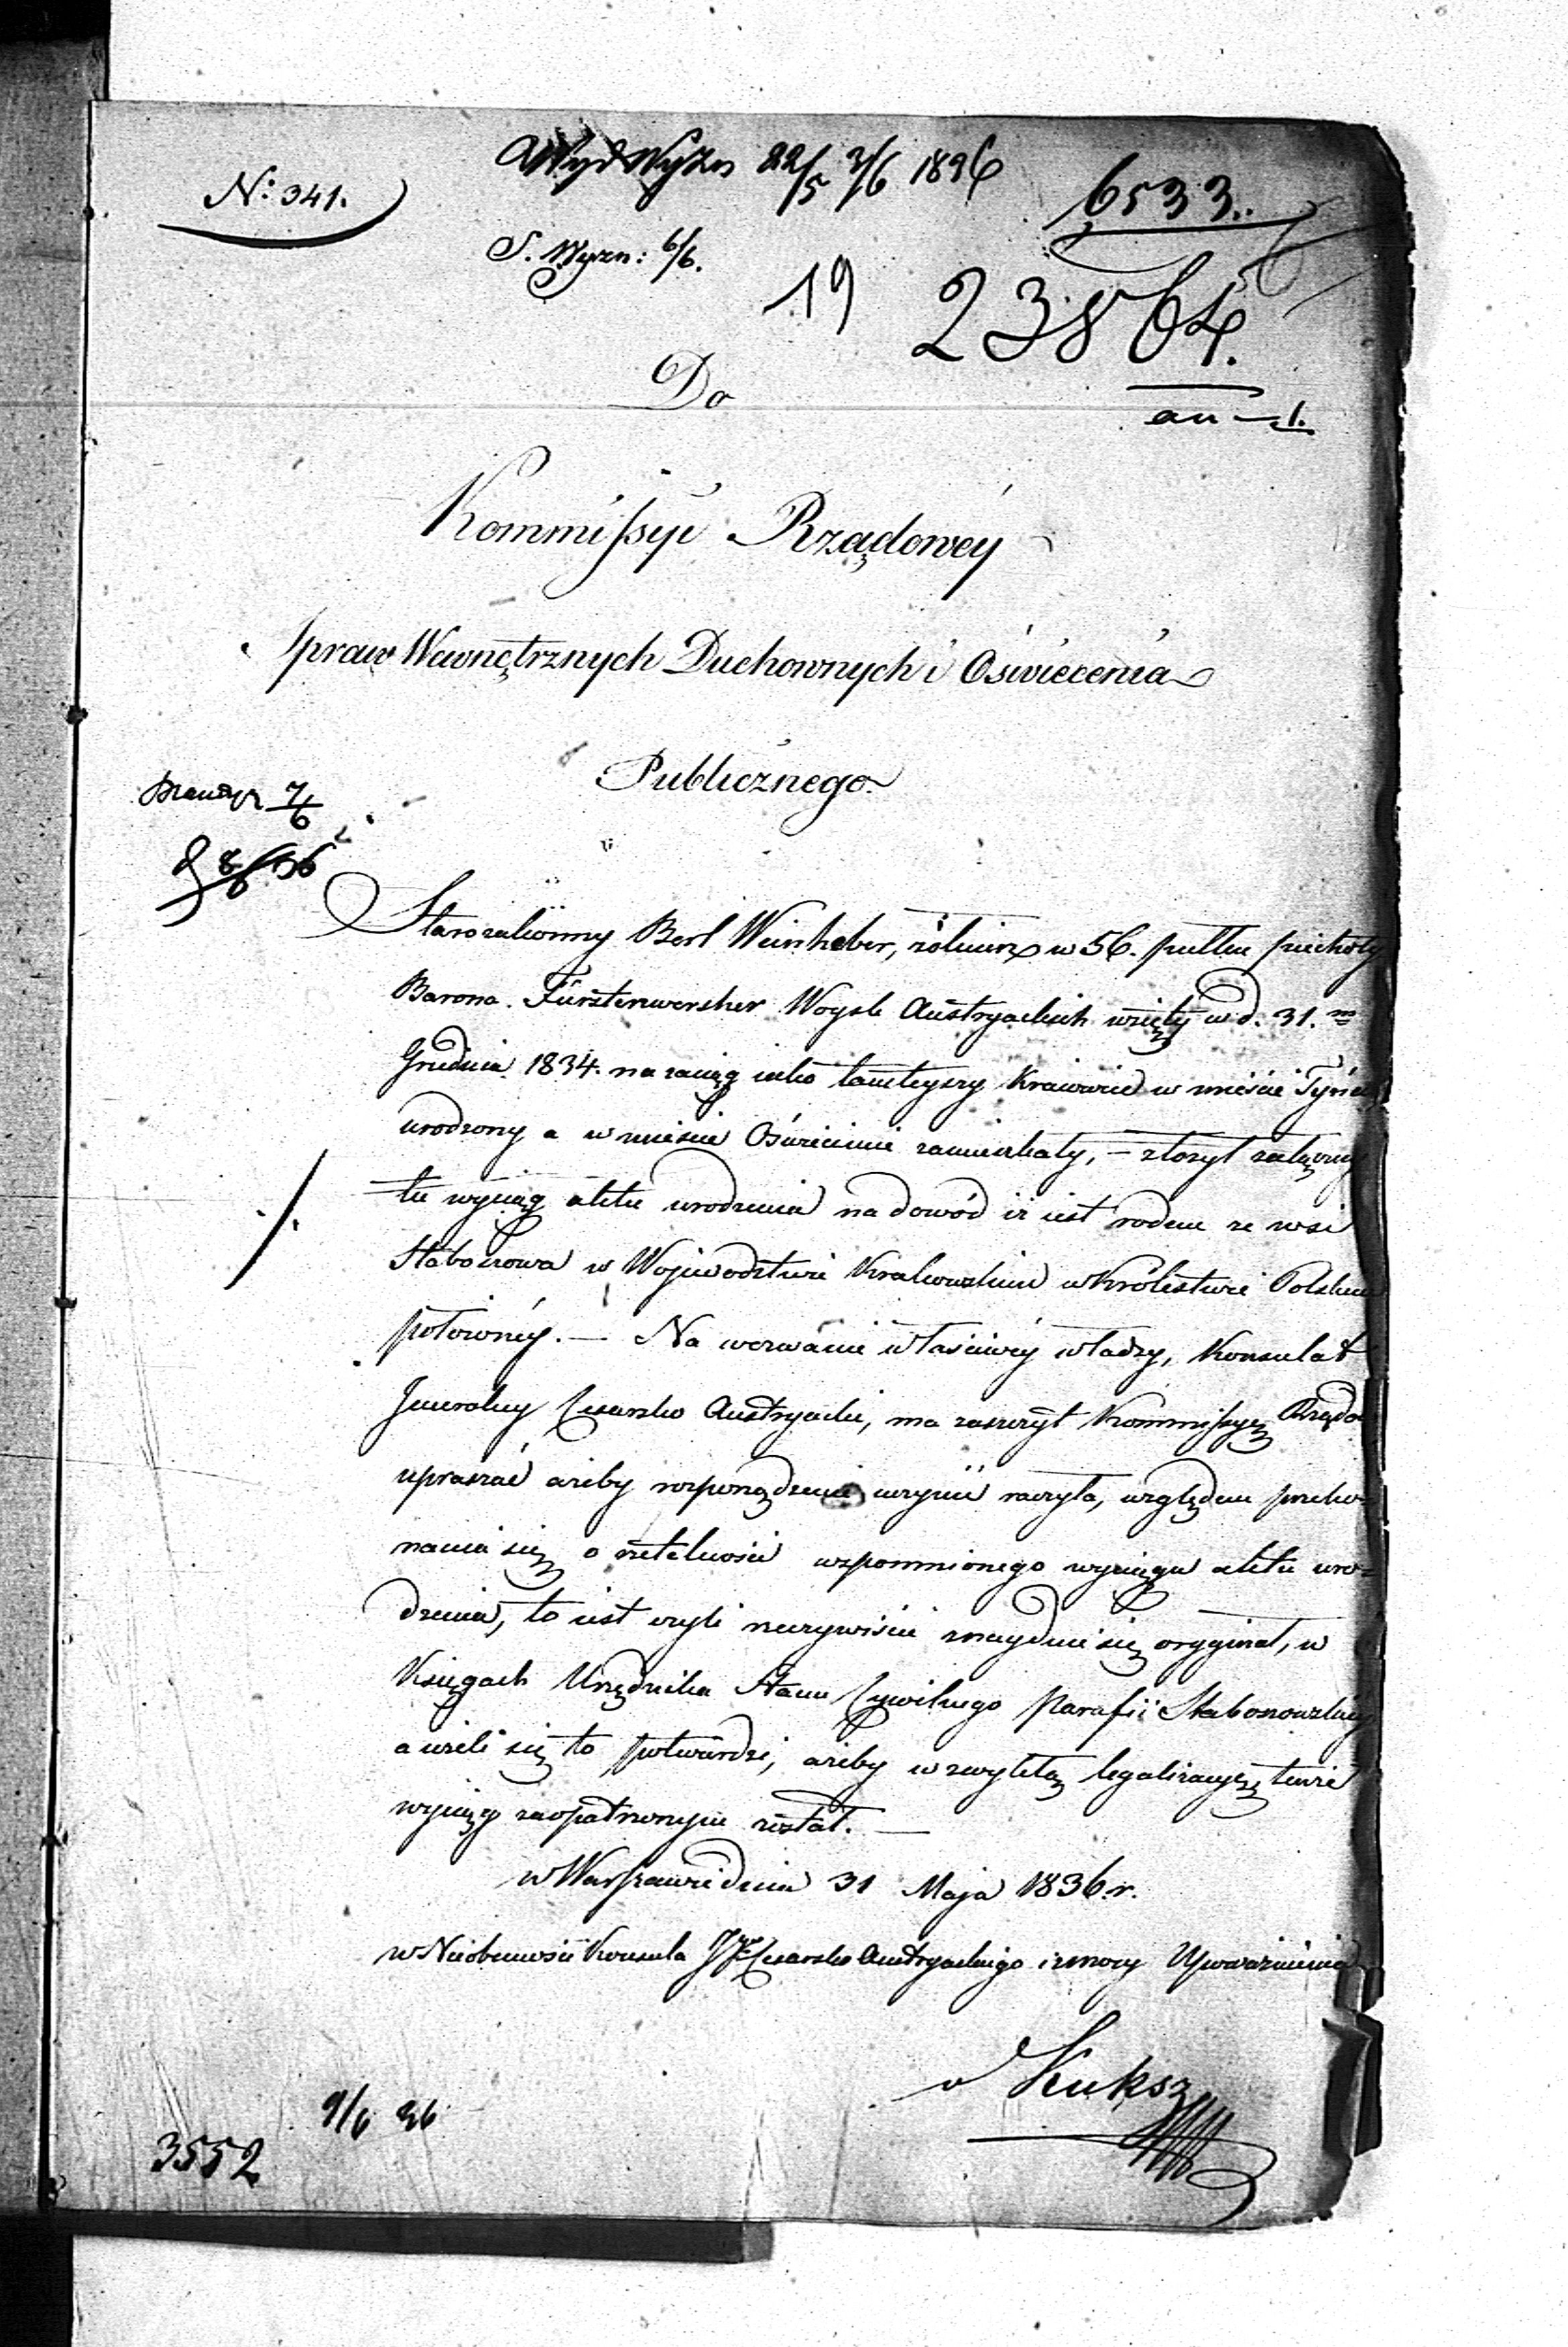 N: 341.
Wyd Wyzn 22/5 3/6 1836
6533.
S. Wyzn: 6/6.
19
23864.
an — 1.
Do
Kommissyi Rządowéy
Spraw Wewnętrznych Duchownych i Oświecenia
Publicznego
7/6
8/6 36
Starozakonny Berl Weinheber, żołnierz w 56. pułku piechoty
Barona Fürstenwersher Woysk Austryackich wzięty w d. 31. m
Grudnia 1834. na zaciąg iako tamteyszy Krawiec w mieście
urodzony a w mieście Oświecimie zamieszkały, — złożył załączony
tu wyciąg aktu urodzenia na dowód iż iest rodem ze wsi
Słaboszowa w Województwie Krakowskim w Królestwie Polskim
położonéy. — Na wezwanie właściwéy władzy, Konsulat
Jeneralny Cesarsko Austryacki, ma zaszczyt Kommissyę Rządo
upraszać ażeby rozporządzenie uczynić raczyła, względem przeko-
nania się o rzetelności wspomnionego wyciągu aktu uro-
dzenia, to iest czyli rzeczywiście znayduie się oryginał, w
Księgach Urzędnika Stanu Cywilnego Parafii Słaboszowskiéy
a ieżeli się to potwierdzi, ażeby w zwykłą legalizacyę tenże
wyciąg zaopatrzonym został. —
w Warszawie dnia 31 Maja 1836. r.
w Nieobecności Konsula Jgo Cesarsko Austryackiego i z mocy Upoważnienia
Kuksz
9/6 36
3552